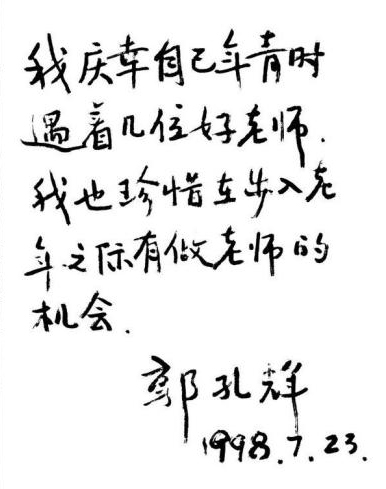 我庆幸自己年青时
遇着几位好老师.
我也珍惜在步入老
年之际有做老师的
机会.
郭孔辉
1998.7.23.